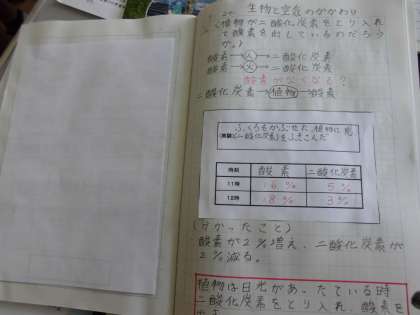 生物と空気のかかわり
植物が二酸化炭素をとり入れ
て酸素を出しているのだろう
か。
酸素→人→二酸化炭素
酸素→火→二酸化炭素
酸素がなくなる?
二酸化炭素→植物→酸素
ふくろをかぶせた植物に息
(二酸化炭素)をふきこんだ
時刻 酸素 二酸化炭素
11時 16% 5%
12時 18% 3%
(分かったこと)
酸素が2%増え、二酸化炭素が
2%減る。
植物は日光があたっている時
二酸化炭素をとり入れ、酸素を